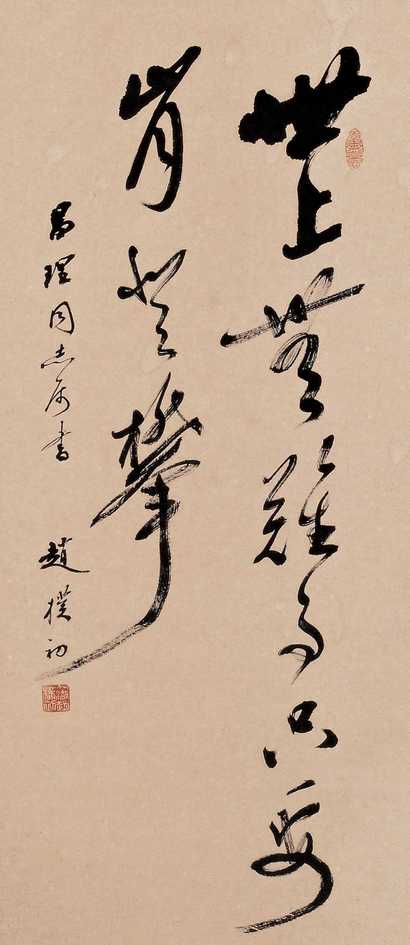 世上無難事只要
肯登攀
昌理同志属书
趙樸初